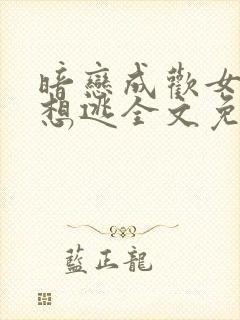 暗戀成歡女
想逃全文免
藍正龍